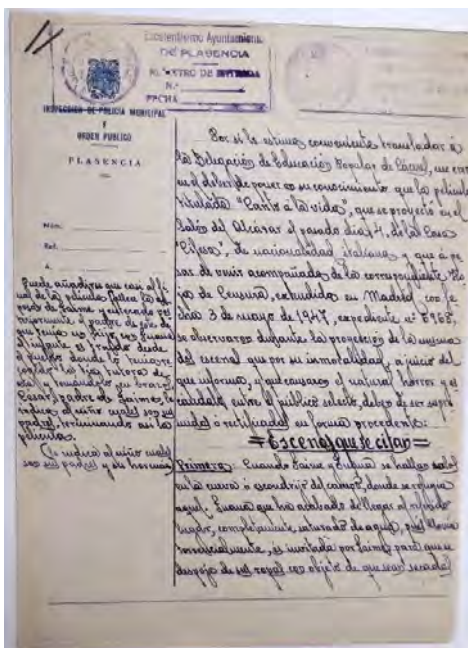 Excelentísimo Ayuntamiento
DE PLASENCIA
REGISTRO DE ENTRADA
N.º
FECHA
INSPECCION DE POLICIA MUNICIPAL
Y
ORDEN PUBLICO
PLASENCIA
Núm.
Ref.
A.
Puede añadirse que casi al fi
nal de la película fallece la es
posa de Jaime y enterado
padre de
que tenía
el infante es traido desde
el pueblo donde lo tenia
la tia tutora de
esta y tomandolo en brazos
Cesar, padre de Jaime, le
indica al niño cuales son sus
padres, terminando asi la
pelicula.
(le indica al niño cuales
son sus padres y sus hermanos
Por si lo estima conveniente transladar a
la Delegación de Educación Popular de Caceres, me creo
en el deber de poner en su conocimiento que la pelicula
titulada "Canto a la vida", que se proyectó en el
Salón del Alcázar el pasado dia 4, de la Casa
"Cifesa", de nacionalidad italiana y que a pe
sar de venir acompañada de la correspondiente Ho
ja de Censura, extendida en Madrid con fe
cha 3 de mayo de 1947, expediente nº 6968,
se observaron durante la proyección de la misma
dos escenas que por su inmoralidad, a juicio del
que informa, y que causaron el natural horror y es
candalo entre el público selecto, deben de ser supri
midas o rectificadas en forma procedente:
=Escenas que se citan=
Primera: Cuando Jaime y Susana se hallan solos
en la cueva o escondrijo del campo, donde se refugia
aquel. Susana que ha acabado de llegar al referido
lugar, completamente saturada de agua, pues llovia
torrencialmente, es invitada por Jaime para que se
despoje de sus ropas con objeto de que sean secadas